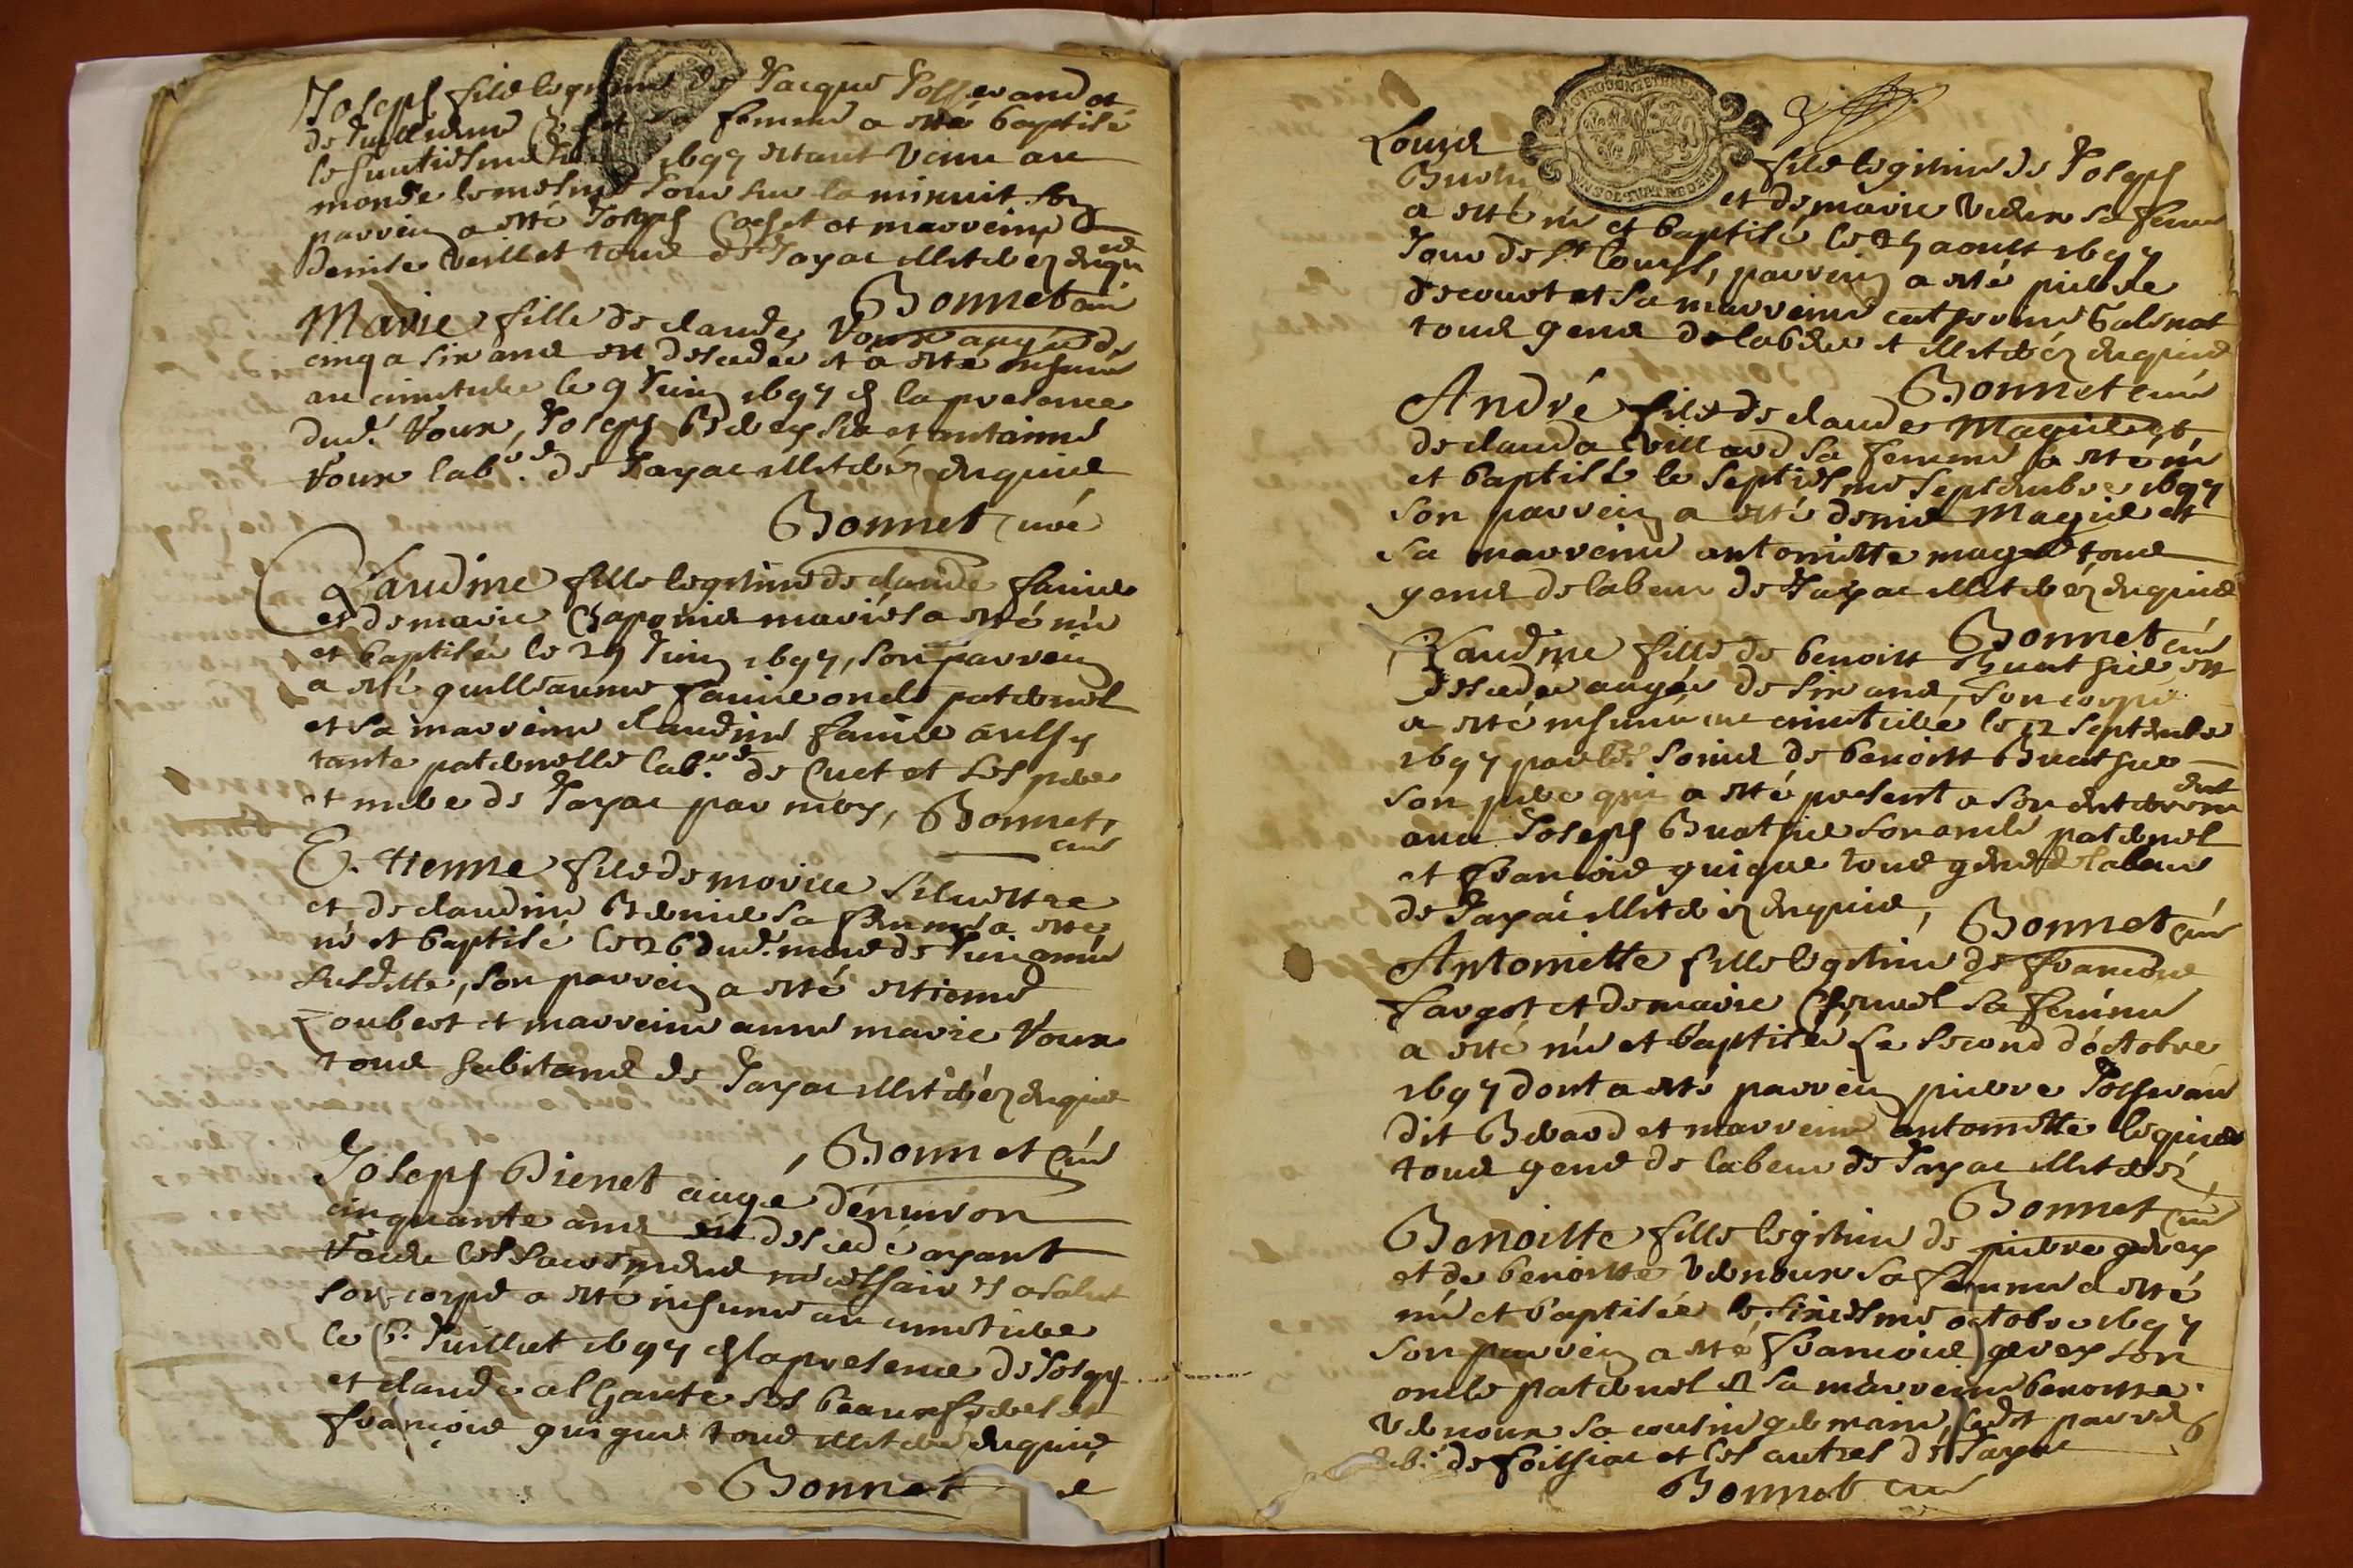 Joseph fils legitime de Jacques Josserand et
de Juillienne sa femme a esté baptisé
le huitiesme 1697 estant venu au
monde le mesme Jour sur la minuit son
parrein a esté Joseph Cochet et marreine
Denise veillet tous de Jayac illiterez enquis
Bonnet curé
Marie fille de claude Voux aagée de
cinq a six ans est decedée et a esté inhumée
au cimetiere le 9 Juin 1697 en la presence
dud. Voux, Joseph et antoine
Voux labrs. de Jayac illiterez enquis
Bonnet curé
Claudine fille legitime de claude favier
et de marie Chaponis mariés a esté née
et baptisée le 29 Juin 1697, son parrein
a esté guilliaume favier oncle paternel
et sa marreine claudine favier aussy
tante paternelle labrs. de Cuet et les pere
et mere de Jayac par moy, Bonnet,
curé
Estienne fils de morice silvestre
et de claudine sa femme a esté
né et baptisé le 26 dud. mois de Juin année
susditte, son parrein a esté estienne
Joubert et marreine anne marie Voux
tous habitans de Jayac illiterez enquis
Bonnet curé
Joseph Bienet aagé denviron
cinquante ans est decedé ayant
receu les sacremens necessaires a salut
son corps a esté inhumé au cimetiere
le 6. Juillet 1697 en la presence de Joseph
et claude ses beaux freres et
françois guigue tous illiterez enquis,
Bonnet
Louis fils legitime de Joseph
et de marie sa femme
a esté né et baptisé le 25 aoust 1697
Jour de st. Louys, parrein a esté pierre
decourt et sa marreine catherine
tous gens de labeur et illiterez enquis
Bonnet curé
André fils de claude Magnier et
de clauda Villard sa femme a esté né
et baptisé le septiesme septembre 1697
son parrein a esté denis et
sa marreine antoinette tous
gens de labeur de Jayac illiterez enquis
Bonnet curé
Claudine fille de benoist Buathier est
decedée aagée de six ans, son corps
a esté inhumé au cimetiere le 12 septembre
1697 par les soins de benoist Buathier
son pere qui a esté present a son enterrement
avec Joseph Buathier son oncle paternel
et françois guigue tous gens de labeur
de Jayac illiterez enquis, Bonnet curé
Antoinette fille legitime de françois
fargot et de marie Chenel sa femme
a esté née et baptisée Le second d'octobre
1697 dont a esté parrein pierre Josserand
dit Berard et marreine antoinette
tous gens de labeur de Jayac illiterez
Bonnet curé
Benoitte fille legitime de pierre gerey
et de benoitte Venoux sa femme a esté
née et baptisée le sixiesme octobre 1697
son parrein a esté françois gerey son
oncle paternel et sa marreine benoitte
Venoux sa cousine germaine, led. parrein
de foissiac et les autres de Jayac
Bonnet curé